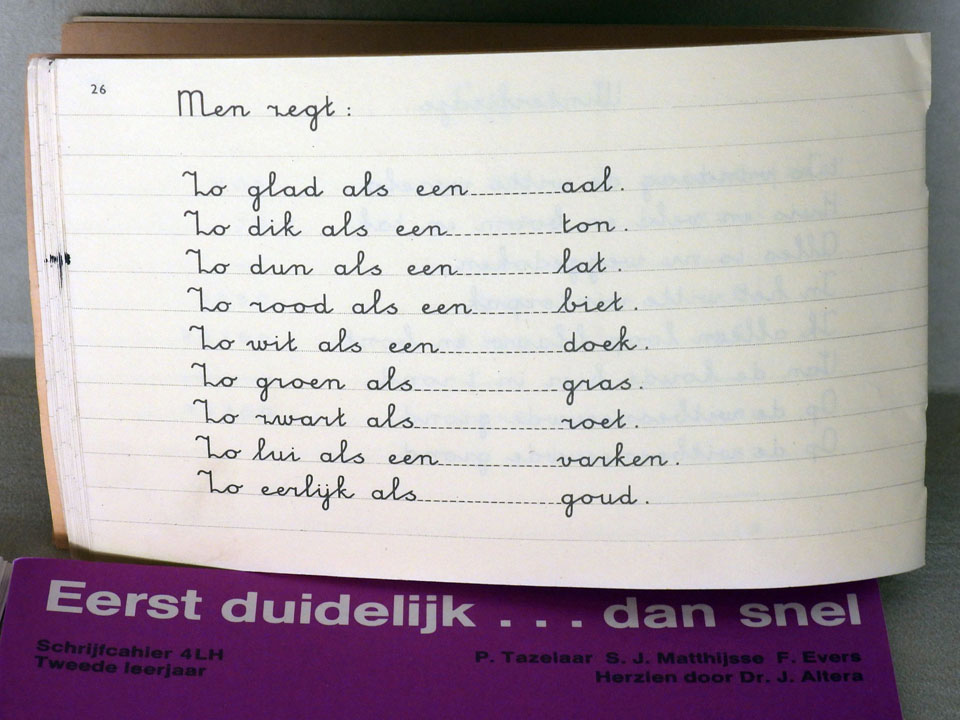 26
Men zegt:
Zo glad als een aal.
Zo dik als een ton.
Zo dun als een lat.
Zo rood als een biet.
Zo wit als een doek.
Zo groen als gras.
Zo zwart als roet.
Zo lui als een varken.
Zo eerlijk als goud.
Eerst duidelijk . . . dan snel
Schrijfcahier 4LH
Tweede leerjaar
P. Tazelaar S. J. Matthijsse F. Evers
Herzien door Dr. J. Altera